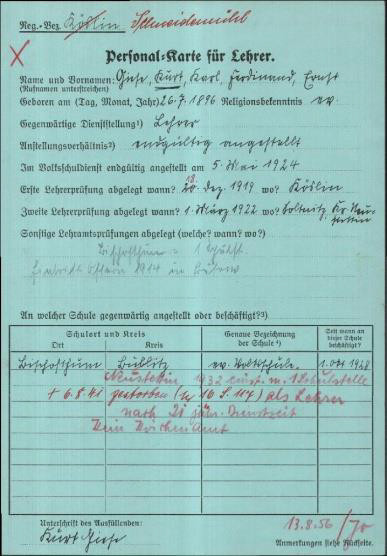 Reg.-Bez. Köslin Schneidemühl
Personal-Karte für Lehrer.
Name und Vornamen: Giese, Kurt, Karl, Ferdinand, Ernst
(Rufnamen unterstreichen)
Geboren am (Tag, Monat, Jahr) 26.7.1896 Religionsbekenntnis ev.
Gegenwärtige Dienststellung¹) Lehrer
Anstellungsverhältnis²) endgültig angestellt
Im Volksschuldienst endgültig angestellt am 5. Mai 1924
18.
Erste Lehrerprüfung abgelegt wann? 20. Dez. 1919 wo? Köslin
Zweite Lehrerprüfung abgelegt wann? 1. März 1922 wo?
Sonstige Lehramtsprüfungen abgelegt (welche? wann? wo?)
Bischofthum = 1
Ostern 1914 in Bütow
An welcher Schule gegenwärtig angestellt oder beschäftigt?³)
Schulort und Kreis
Ort Kreis
Genaue Bezeichnung der Schule⁴)
Seit wann an dieser Schule beschäftigt?
Bischofthum Bublitz ev. Volksschule 1. Okt 1928
Neustettin 1932 m. 1 Schulstelle
+ 6.8.41 gestorben als Lehrer
nach 21 jähr. Dienstzeit
Kein Kirchenamt
Unterschrift des Ausfüllenden:
Kurt Giese
13.8.56 /70
Anmerkungen siehe Rückseite.